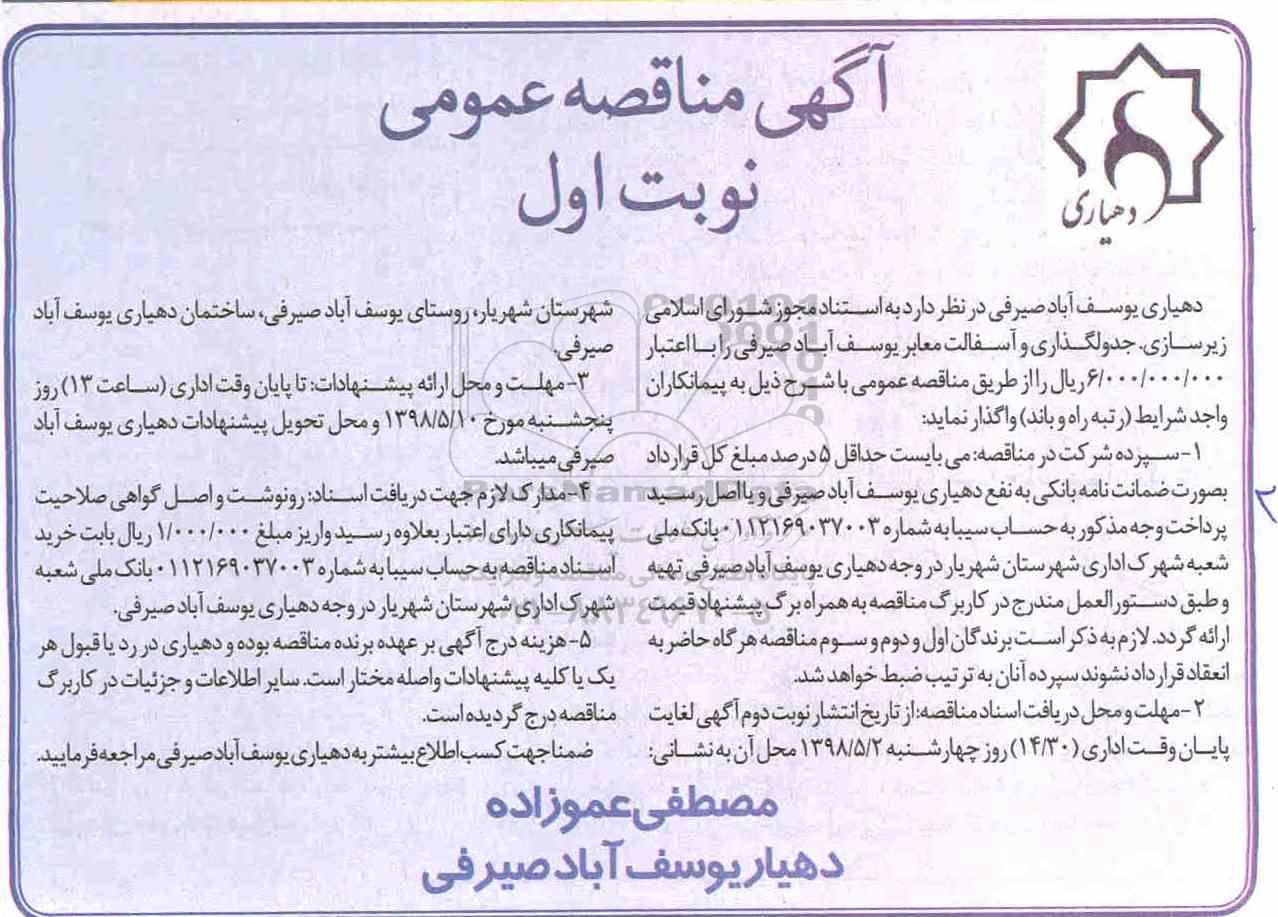 آگهی مناقصه عمومی
نوبت اول
دهیاری
دهیاری یوسف آباد صیرفی در نظر دارد به استناد مجوز شورای اسلامی
زیرسازی. جدولگذاری و آسفالت معابر یوسف آباد صیرفی را با اعتبار
۶/۰۰۰/۰۰۰/۰۰۰ ریال را از طریق مناقصه عمومی با شرح ذیل به پیمانکاران
واجد شرایط (رتبه راه و باند) واگذار نماید:
۱-سپرده شرکت در مناقصه: می بایست حداقل ۵ درصد مبلغ کل قرارداد
بصورت ضمانت نامه بانکی به نفع دهیاری یوسف آباد صیرفی و یا اصل رسید
پرداخت وجه مذکور به حساب سیبا به شماره ۰۱۱۲۱۶۹۰۳۷۰۰۳ بانک ملی
شعبه شهرک اداری شهرستان شهریار در وجه دهیاری یوسف آباد صیرفی تهیه
و طبق دستورالعمل مندرج در کاربرگ مناقصه به همراه برگ پیشنهاد قیمت
ارائه گردد. لازم به ذکر است برندگان اول و دوم و سوم مناقصه هرگاه حاضر به
انعقاد قرارداد نشوند سپرده آنان به ترتیب ضبط خواهد شد.
۲-مهلت و محل دریافت اسناد مناقصه: از تاریخ انتشار نوبت دوم آگهی لغایت
پایان وقت اداری (۱۴/۳۰) روز چهارشنبه ۱۳۹۸/۵/۲ محل آن به نشانی:
شهرستان شهریار، روستای یوسف آباد صیرفی، ساختمان دهیاری یوسف آباد
صیرفی.
۳-مهلت و محل ارائه پیشنهادات: تا پایان وقت اداری (ساعت ۱۳) روز
پنجشنبه مورخ ۱۳۹۸/۵/۱۰ و محل تحویل پیشنهادات دهیاری یوسف آباد
صیرفی میباشد.
۴-مدارک لازم جهت دریافت اسناد: رونوشت و اصل گواهی صلاحیت
پیمانکاری دارای اعتبار بعلاوه رسید واریز مبلغ ۱/۰۰۰/۰۰۰ ریال بابت خرید
اسناد مناقصه به حساب سیبا به شماره ۰۱۱۲۱۶۹۰۳۷۰۰۳ بانک ملی شعبه
شهرک اداری شهرستان شهریار در وجه دهیاری یوسف آباد صیرفی.
۵-هزینه درج آگهی بر عهده برنده مناقصه بوده و دهیاری در رد یا قبول هر
یک یا کلیه پیشنهادات واصله مختار است. سایر اطلاعات و جزئیات در کاربرگ
مناقصه درج گردیده است.
ضمنا جهت کسب اطلاع بیشتر به دهیاری یوسف آباد صیرفی مراجعه فرمایید.
مصطفی عموزاده
دهیار یوسف آباد صیرفی